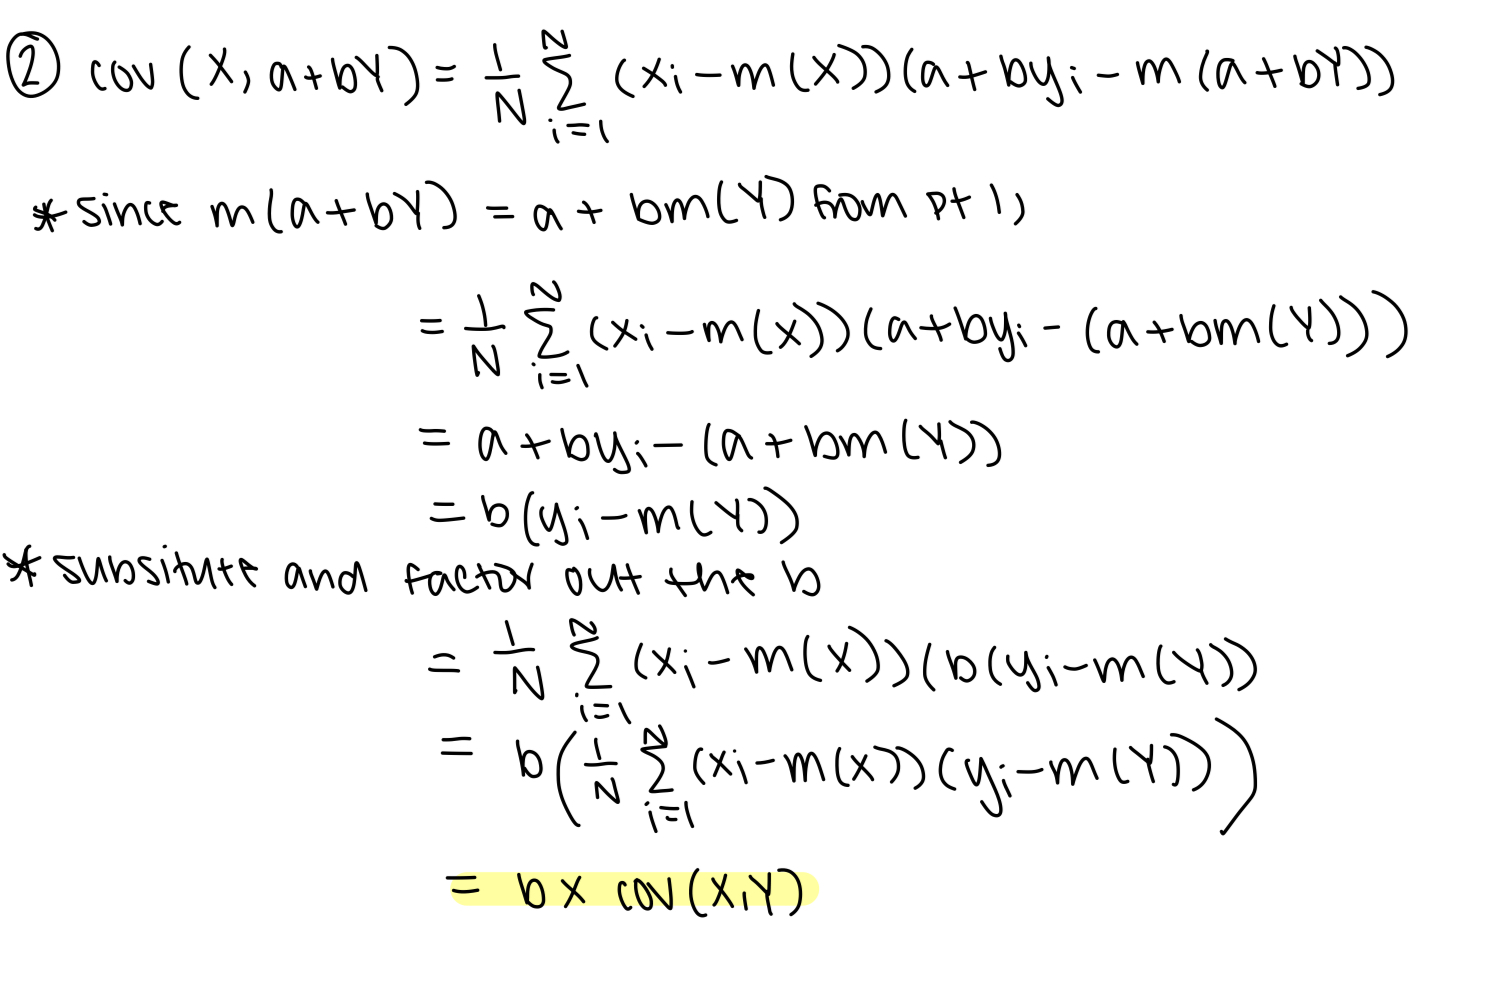 ② cov (X, a+bY) = 1/N Σ_{i=1}^{N} (xi − m(X))(a + byi − m(a+bY))
* since m(a+bY) = a + bm(Y) from pt 1,
= 1/N Σ_{i=1}^{N} (xi − m(x))(a+byi − (a+bm(Y)))
= a + byi − (a + bm(Y))
= b(yi − m(Y))
* subsitute and factor out the b
= 1/N Σ_{i=1}^{N} (xi − m(x))(b(yi−m(Y))
= b(1/N Σ_{i=1}^{N} (xi−m(x))(yi−m(Y)))
= b × cov(X,Y)